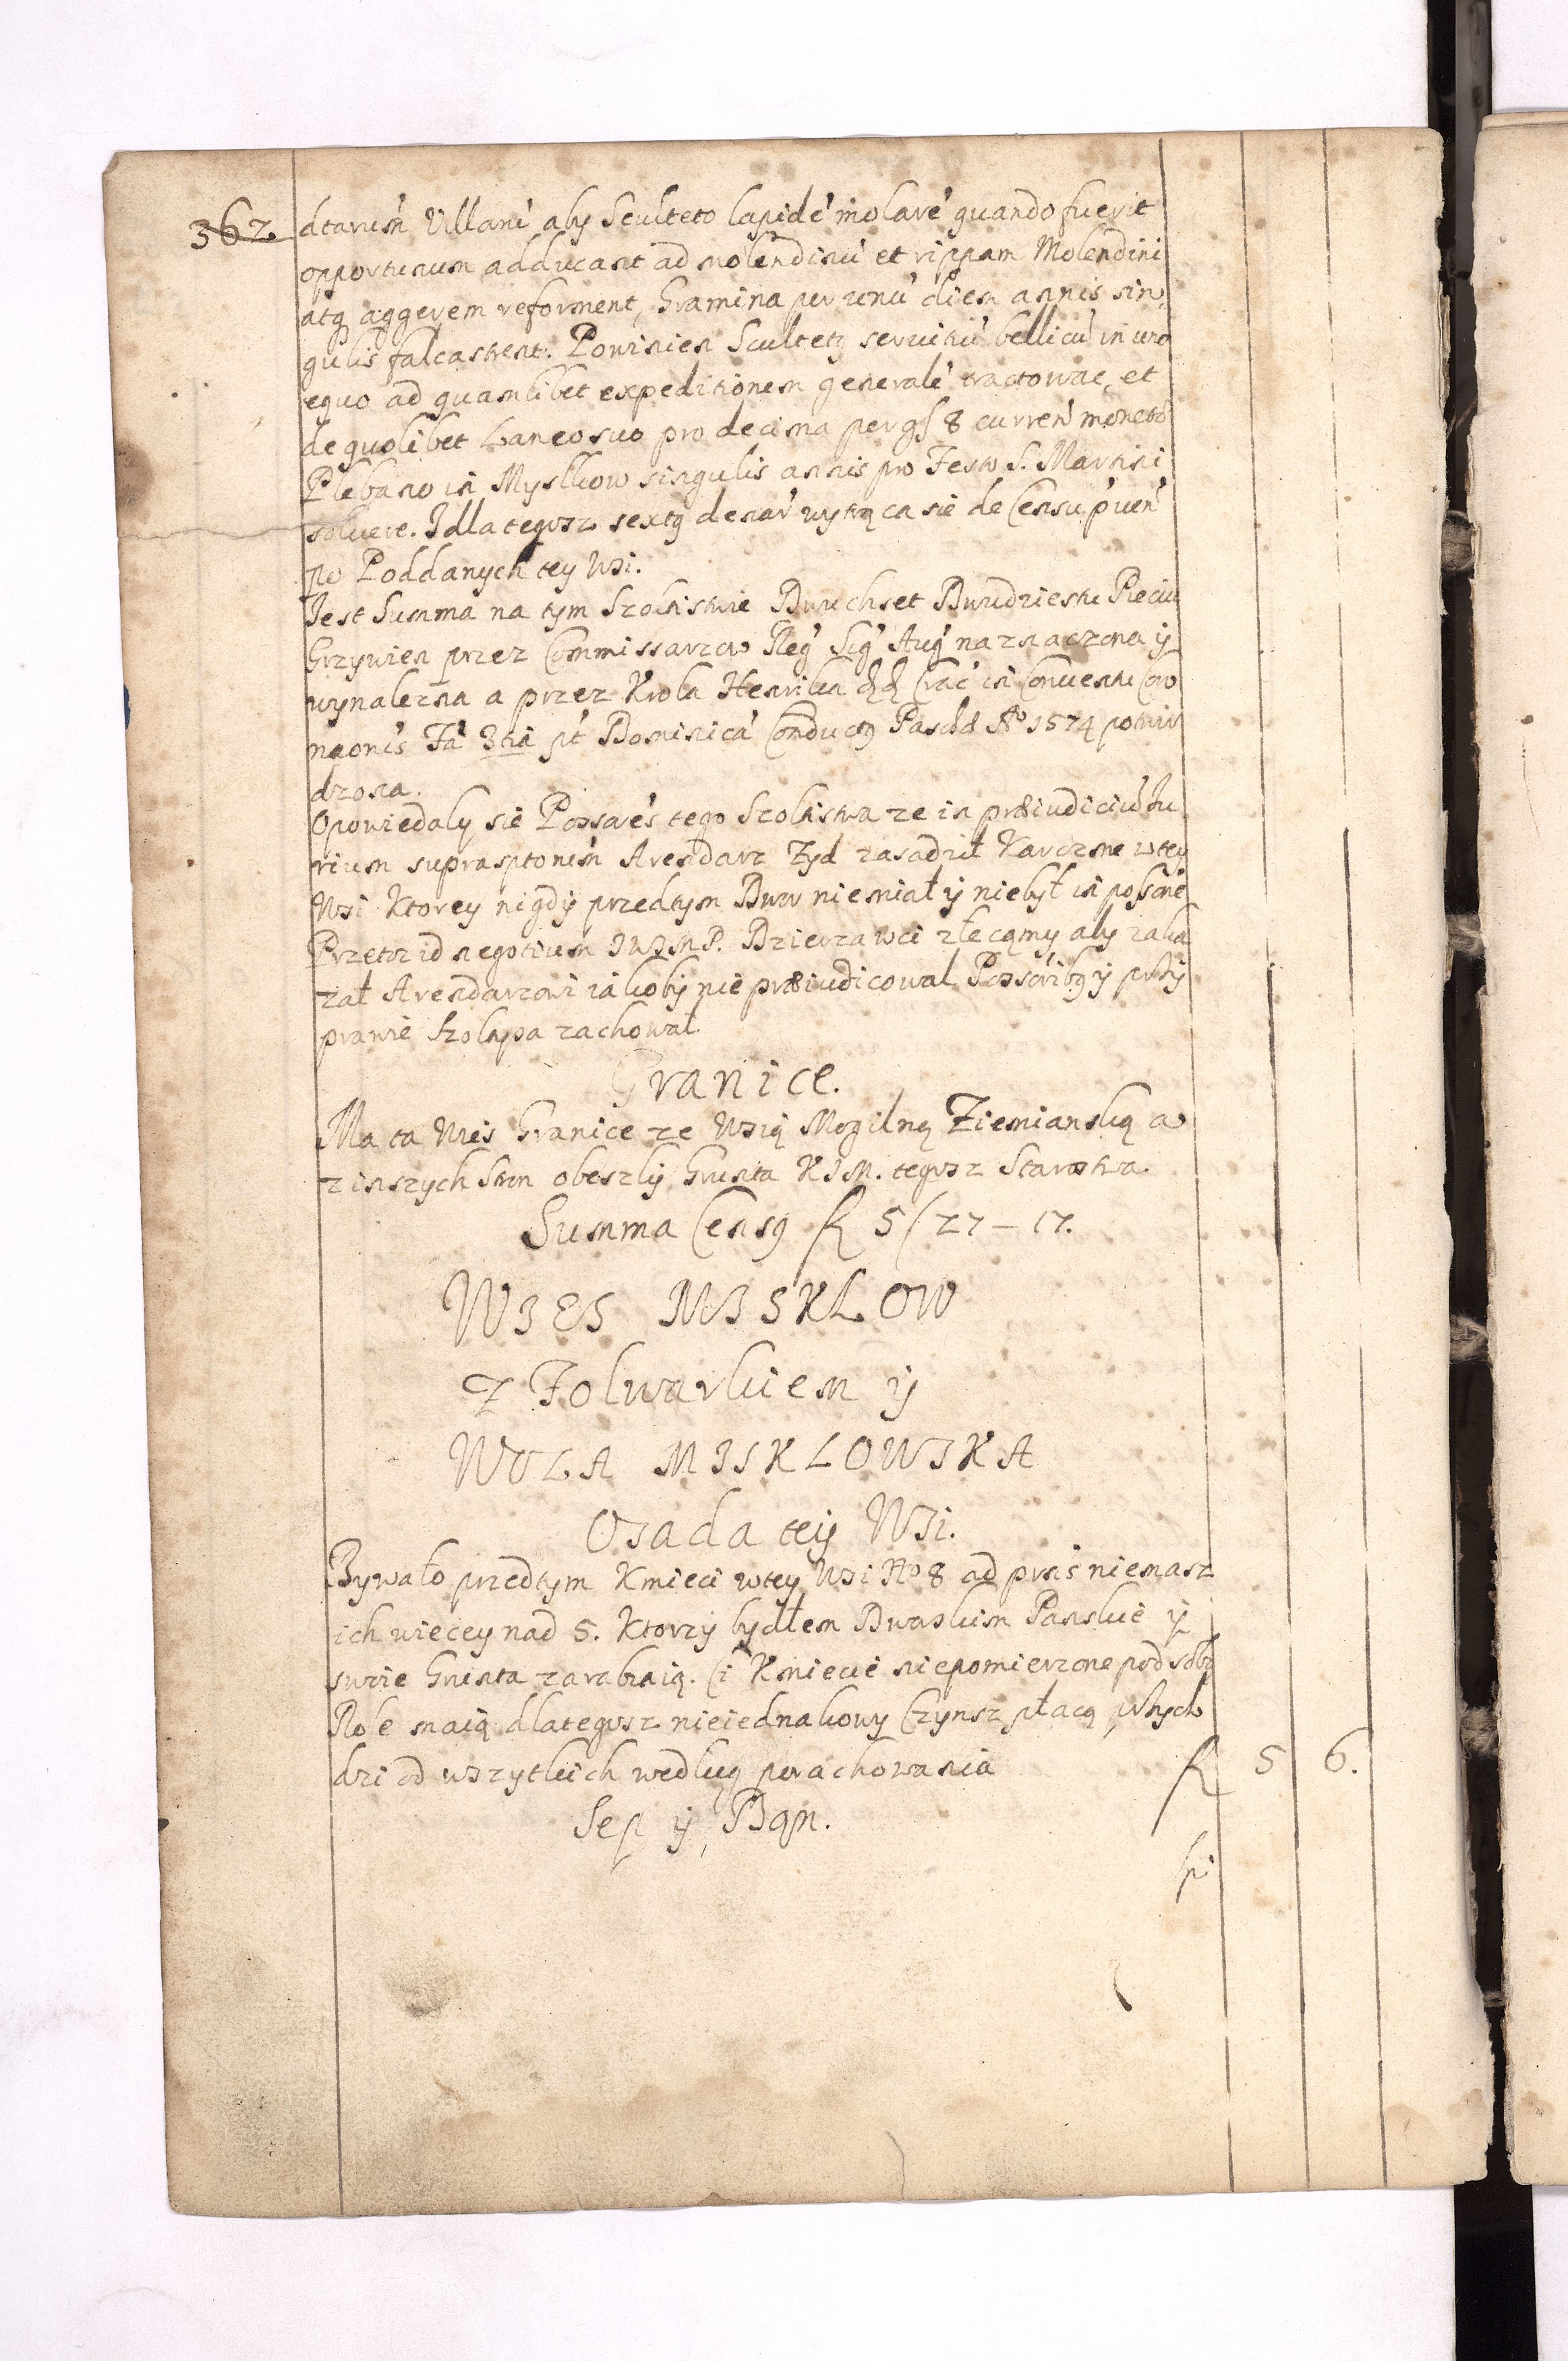 362
dtarum̃ Villani aby Sculteto lapidẽ molarẽ quando fuerit
opportunum adducant ad molendinũ et rippam Molendini
atq aggerem reforment, Gramina per unũ diem annis sin,
gulis falcastrent. Powinien Scultetg seruitiũ bellicũ in uno
equo ad quamlibet expeditionem generalẽ tractowac, et
de quolibet Laneo suo pro decima per gs 8 curren̍ moneta
Plebano in Mysllow singulis annis pro Festo S. Martini
soluere. I dla tegosz sextg denar̍ wytrąca sie de Censu puen̍
po Poddanych tey Wsi.
Jest Summa na tym Szoltistwie Dwuchset Dwudziestu Pieciu
Grzywien przez Commissarzow Reg̍ Sig̍ Aug̍ naznaczona ÿ
wynalezna a przez Krola Henrika Crac̍ in Conuentu Coro
naonis Fa̍ 3tia pt Dominicã Conductg Pasch A⁰ 1574 potwir
dzona.
Opowiedaly sie Possores tego Szoltistwa ze in præiudiciũ Iu
rium suprasptorum̃ Arendarz Zyd zasadził Karczme w tey
Wsi Ktorey nigdÿ przedtym Dwor niemiał ÿ niebył in possone
Przeto id negotium IWIMP. Dzierzawci zlecamy aby zaka
zał Arendarzowi iakobÿ nie præiudicowal Possoribg ÿ przÿ
prawie Szoltysa zachował.
Granice.
Ma ta Wies Granice ze Wsią Mogilną Ziemianską a
z inszych stron obeszlÿ Grunta KIM. tegosz Starostwa.
Summa Censg fl 5(27 – 17.
WIES MISKLOW
Z Folwarkiem ÿ
WOLA MISKLOWSKA
Osada teÿ Wsi.
Bywało przedtym Kmieci w tey Wsi N⁰ 8 ad prns niemasz
ich wiecey nad 5. Ktorzÿ bydłem Dworskim Panskie ÿ
swoie Grunta zarabiaią. Ci Kmiecie niepomierzone pod sobą
Role maią dlategosz nieiednakowy Czynsz płacą przÿcho
dzi od wszytkich wedlug porachowania fl 5 6.
Sep ÿ Dan.
spi